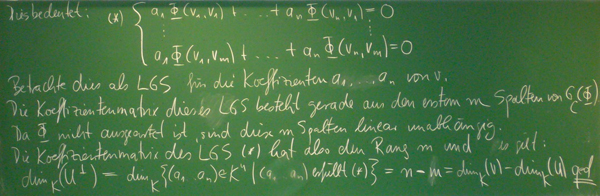 Dies bedeutet: (*) { a₁ Φ(v₁,v₁) + ... + aₙ Φ(vₙ,v₁) = 0
⋮ ⋮
a₁ Φ(v₁,vₘ) + ... + aₙ Φ(vₙ,vₘ) = 0
Betrachte dies als LGS für die Koeffizienten a₁ ... aₙ von v.
Die Koeffizientenmatrix dieses LGS besteht gerade aus den ersten m Spalten von G_C(Φ)
Da Φ nicht ausgeartet ist, sind diese m Spalten linear unabhängig.
Die Koeffizientenmatrix des LGS (*) hat also den Rang m und es gilt:
dim_K(U^⊥) = dim_K {(a₁ .. aₙ) ∈ Kⁿ | (a₁ ... aₙ) erfüllt (*)} = n - m = dim_K(V) - dim_K(U) qed